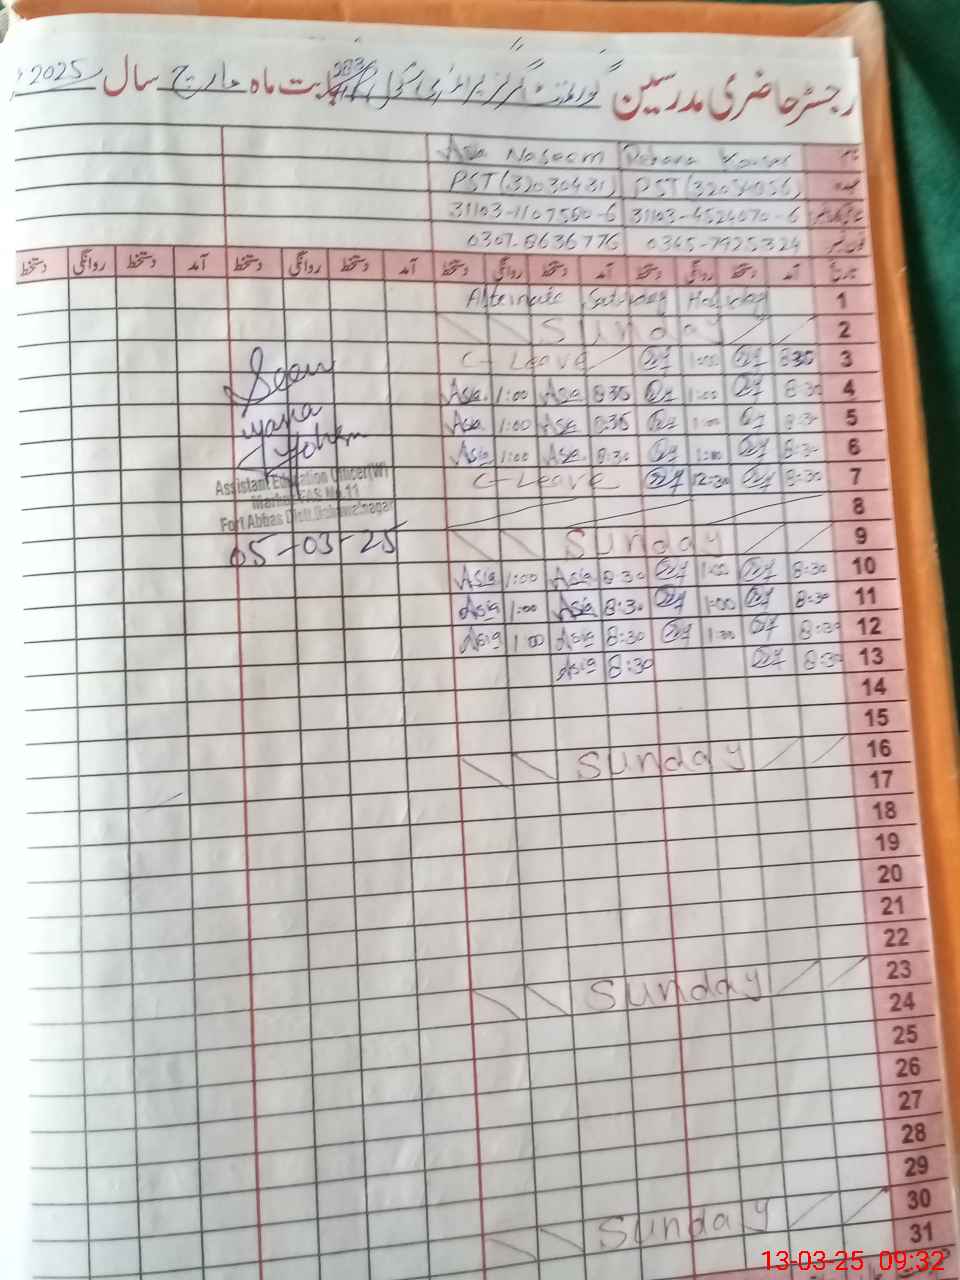 رجسٹر حاضری مدرسین گورنمنٹ گرلز پرائمری سکول بابت ماہ مارچ سال 2025
نام Asia Naseem
عہدہ PST(32030431) PST(32054056)
31103-1107560-6 31103-4524070-6
0307-8636776 0345-7925324
تاریخ آمد دستخط روانگی دستخط آمد دستخط روانگی دستخط آمد دستخط روانگی دستخط آمد دستخط روانگی دستخط
1 Alternate Saturday Holiday
2 Sunday
3 C-Leave 1:00 8:30
4 Asia 1:00 Asia 8:30 1:00 8:30
5 Asia 1:00 Asia 8:30 1:00 8:30
6 Asia 1:00 Asia 8:30 1:00 8:30
7 C-Leave 12:30 8:30
8
9 Sunday
10 Asia 1:00 Asia 8:30 1:00 8:30
11 Asia 1:00 Asia 8:30 1:00 8:30
12 Asia 1:00 Asia 8:30 1:30 8:30
13 Asia 8:30 8:30
14
15
16 Sunday
17
18
19
20
21
22
23 Sunday
24
25
26
27
28
29
30 Sunday
31
Assistant Education Officer(W)
Markaz No.11
Fort Abbas Distt. Bahawalnagar
05-03-25
13-03-25 09:32